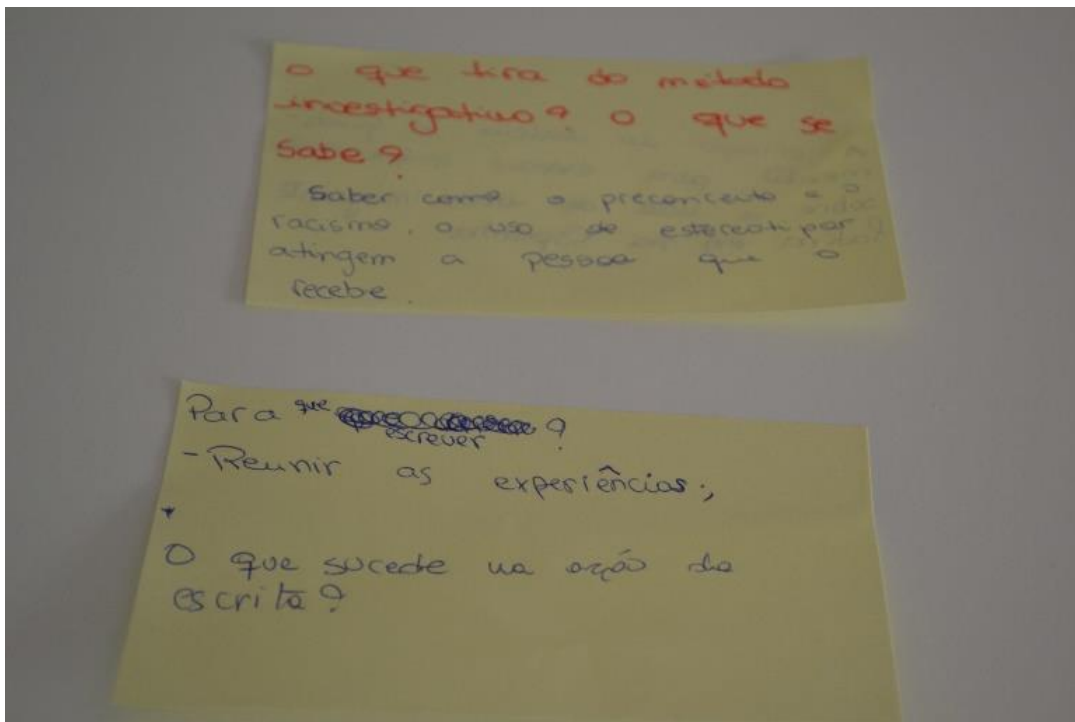 O que tira do método
investigativo? O que se
sabe?
Saber como o preconceito e o
racismo, o uso de estereotipar
atingem a pessoa que o
recebe.
Para que ?
escrever
- Reunir as experiências;
*
O que sucede na ação da
escrita?